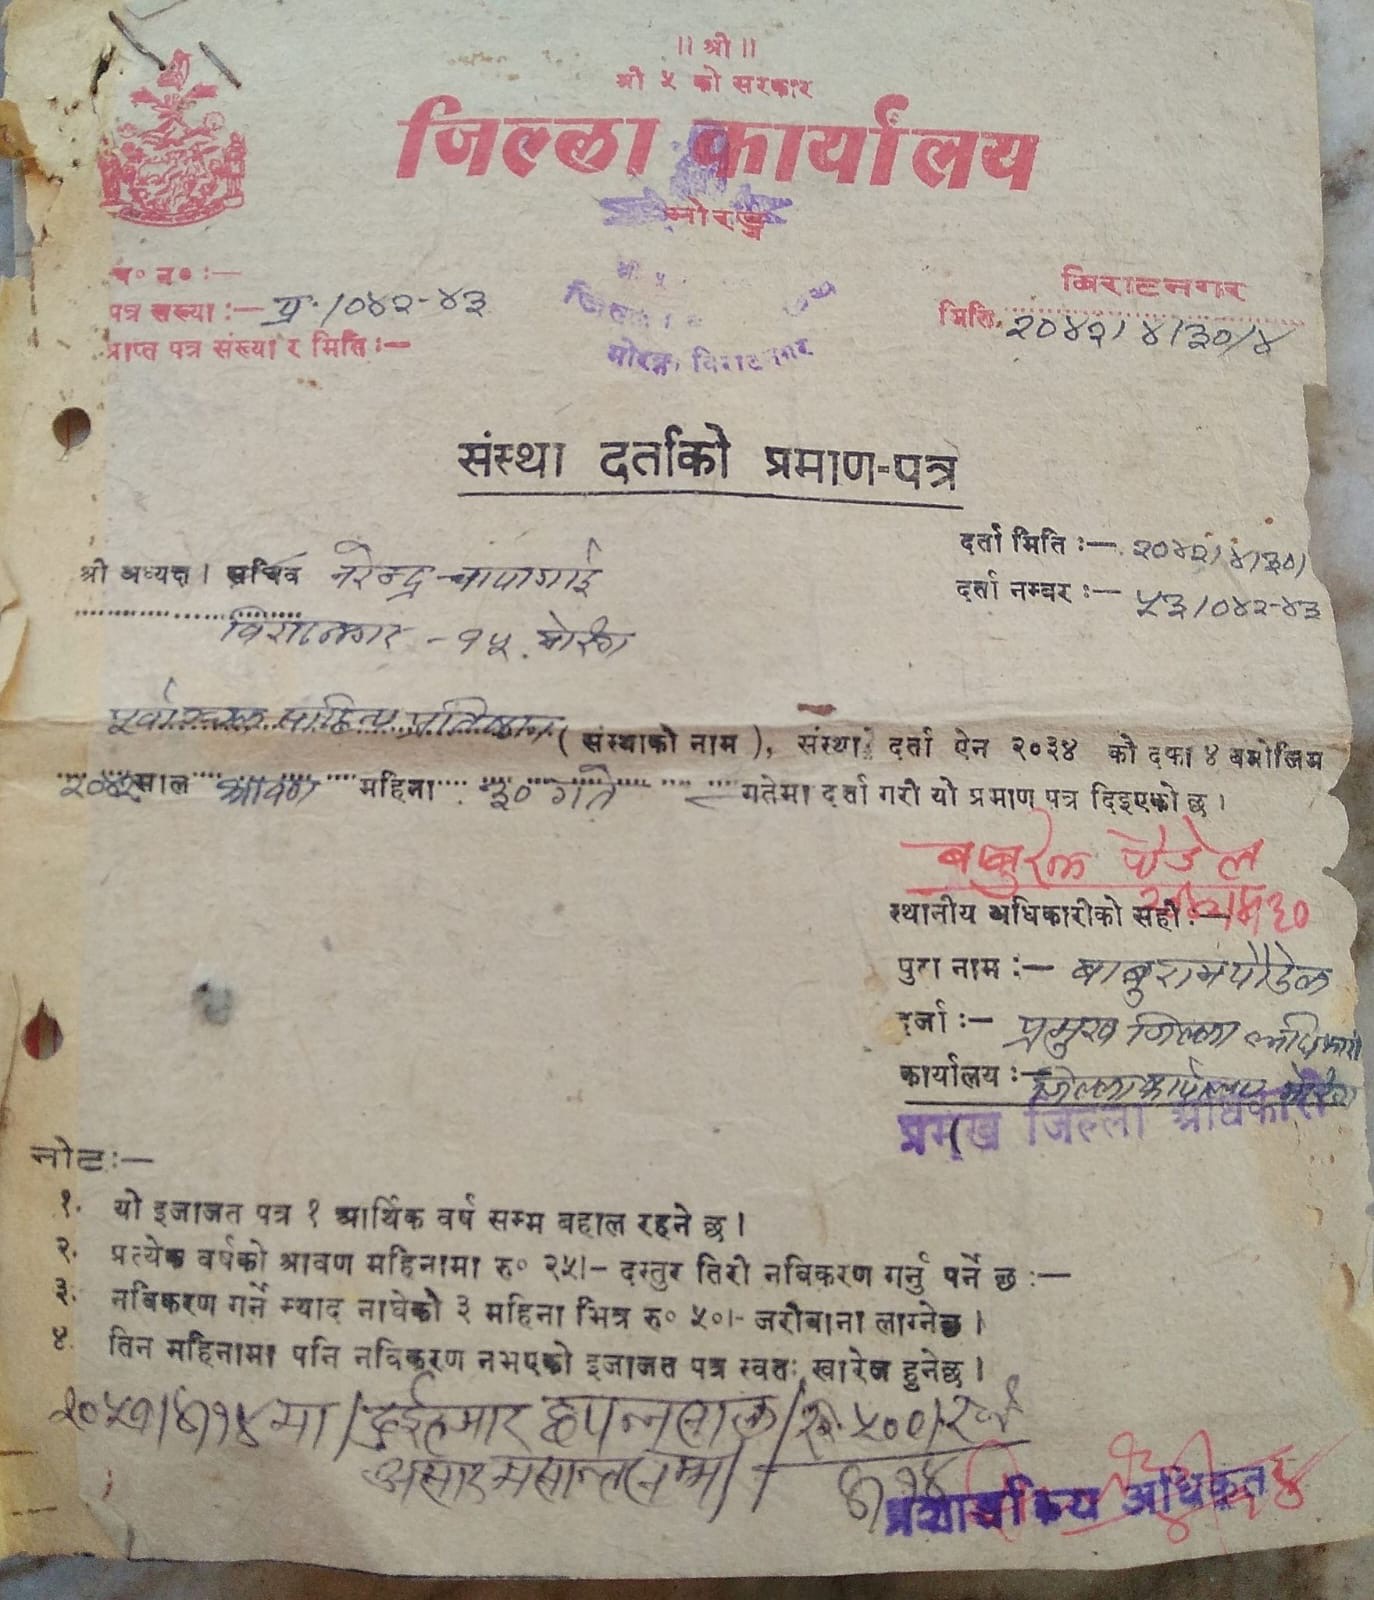 ॥ श्री ॥
श्री ५ को सरकार
जिल्ला कार्यालय
मोरङ्ग
च० न० :—
पत्र संख्या :— प्र. / ०४२-४३
प्राप्त पत्र संख्या र मिति :—
बिराटनगर
मिति २०४२।४।३०।४
श्री ५
जिल्ला
मोरङ्ग, विराटनगर
संस्था दर्ताको प्रमाण-पत्र
दर्ता मिति :— २०४२।४।३०।
दर्ता नम्बर :— ५३।०४२-४३
श्री अध्यक्ष । सचिव नरेन्द्र चापागाई
विराटनगर - १५ मोरङ
पूर्वाञ्चल साहित्य प्रतिष्ठान ( संस्थाको नाम ), संस्था दर्ता ऐन २०३४ को दफा ४ बमोजिम
२०४२ साल श्रावण महिना ३० गते गतेमा दर्ता गरी यो प्रमाण पत्र दिइएको छ ।
बाबुराम पौडेल
स्थानीय अधिकारीको सही :—
पुरा नाम :— बाबुराम पौडेल
दर्जा :— प्रमुख जिल्ला अधिकारी
कार्यालय :— जिल्ला कार्यालय मोरङ
प्रमुख जिल्ला अधिकारी
नोट :—
१. यो इजाजत पत्र १ आर्थिक वर्ष सम्म बहाल रहने छ ।
२. प्रत्येक वर्षको श्रावण महिनामा रु० २५।- दस्तुर तिरी नविकरण गर्नु पर्ने छ :—
३. नविकरण गर्ने म्याद नाघेको ३ महिना भित्र रु० ५०।- जरीबाना लाग्नेछ ।
४. तिन महिनामा पनि नविकरण नभएको इजाजत पत्र स्वतः खारेज हुनेछ ।
मा दुईहजार छपन्न साल रु. ५००।
असार मसान्त सम्म
प्रशासकिय अधिकृत